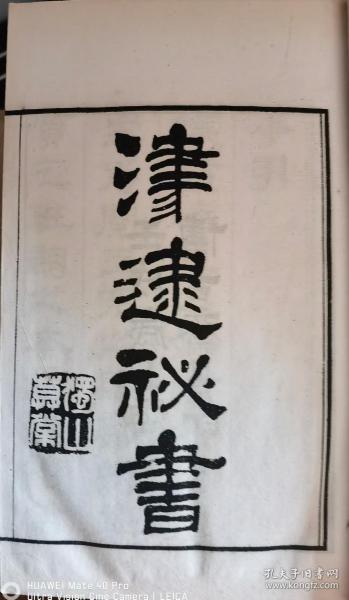 津逮祕書
獨山莫棠
HUAWEI Mate 40 Pro
Ultra Vision Cine Camera | LEICA
孔夫子旧书网
www.kongfz.com